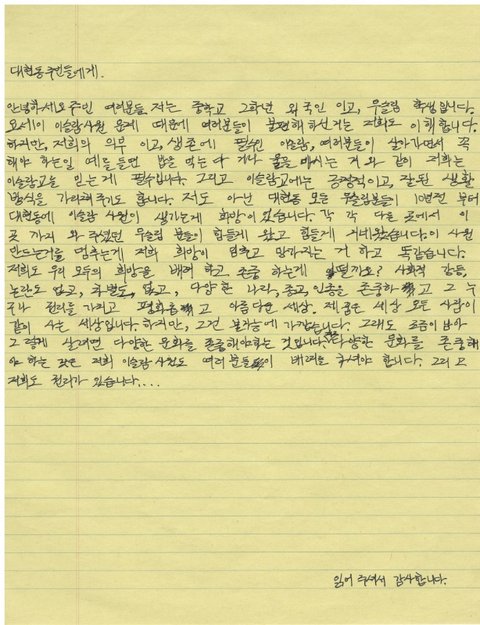 대현동 주민들에게.
안녕하세요 주민 여러분들 저는 중학교 2학년 외국인 이고, 무슬림 학생입니다.
요세이 이슬람사원 문제 때문에 여러분들이 불편해 하신거는 저희도 이해합니다.
하지만, 저희의 의무 이고, 생존에 필수인 이슬람, 여러분들이 살아가면서 꼭
해야 하는일 예를 들면 밥을 먹는다 거나 물을 마시는 거 와 같이 저희는
이슬람교를 믿는게 필수입니다. 그리고 이슬람교에는 긍정적이고, 잘된 생활
방식을 가리켜주기도 합니다. 저도 아닌 대현동 모든 무슬림분들이 10년전 부터
대현동에 이슬람 사원이 생기는게 희망이였습니다. 각 각 다른 곳에서 이
곳 까지 와 주셨던 무슬림 분들이 힘들게 왔고 힘들게 지내왔습니다. 이 사원
만드는거를 멈추는게 저희 희망이 멈추고 망가지는 거 하고 똑같습니다.
저희도 우리 모두의 희망을 배려 하고 존중 하는게 어떨까요? 사회적 갈등,
논란도 없고, 차별도 없고, 다양한 나라, 종교, 인종을 존중하고 그 누
구나 권리를 가지고 평화롭고 아름다운 세상. 제 꿈은 세상 모든 사람이
같이 사는 세상입니다. 하지만, 그건 불가능에 가깝습니다. 그래도 조금이 남아
그렇게 살려면 다양한 문화를 존중해야하는 것입니다. 다양한 문화를 존중해
야 하는 것은 저희 이슬람사원도 여러분들이 배려를 하셔야 합니다. 그리고
저희도 권리가 있습니다....
읽어 주셔서 감사합니다.